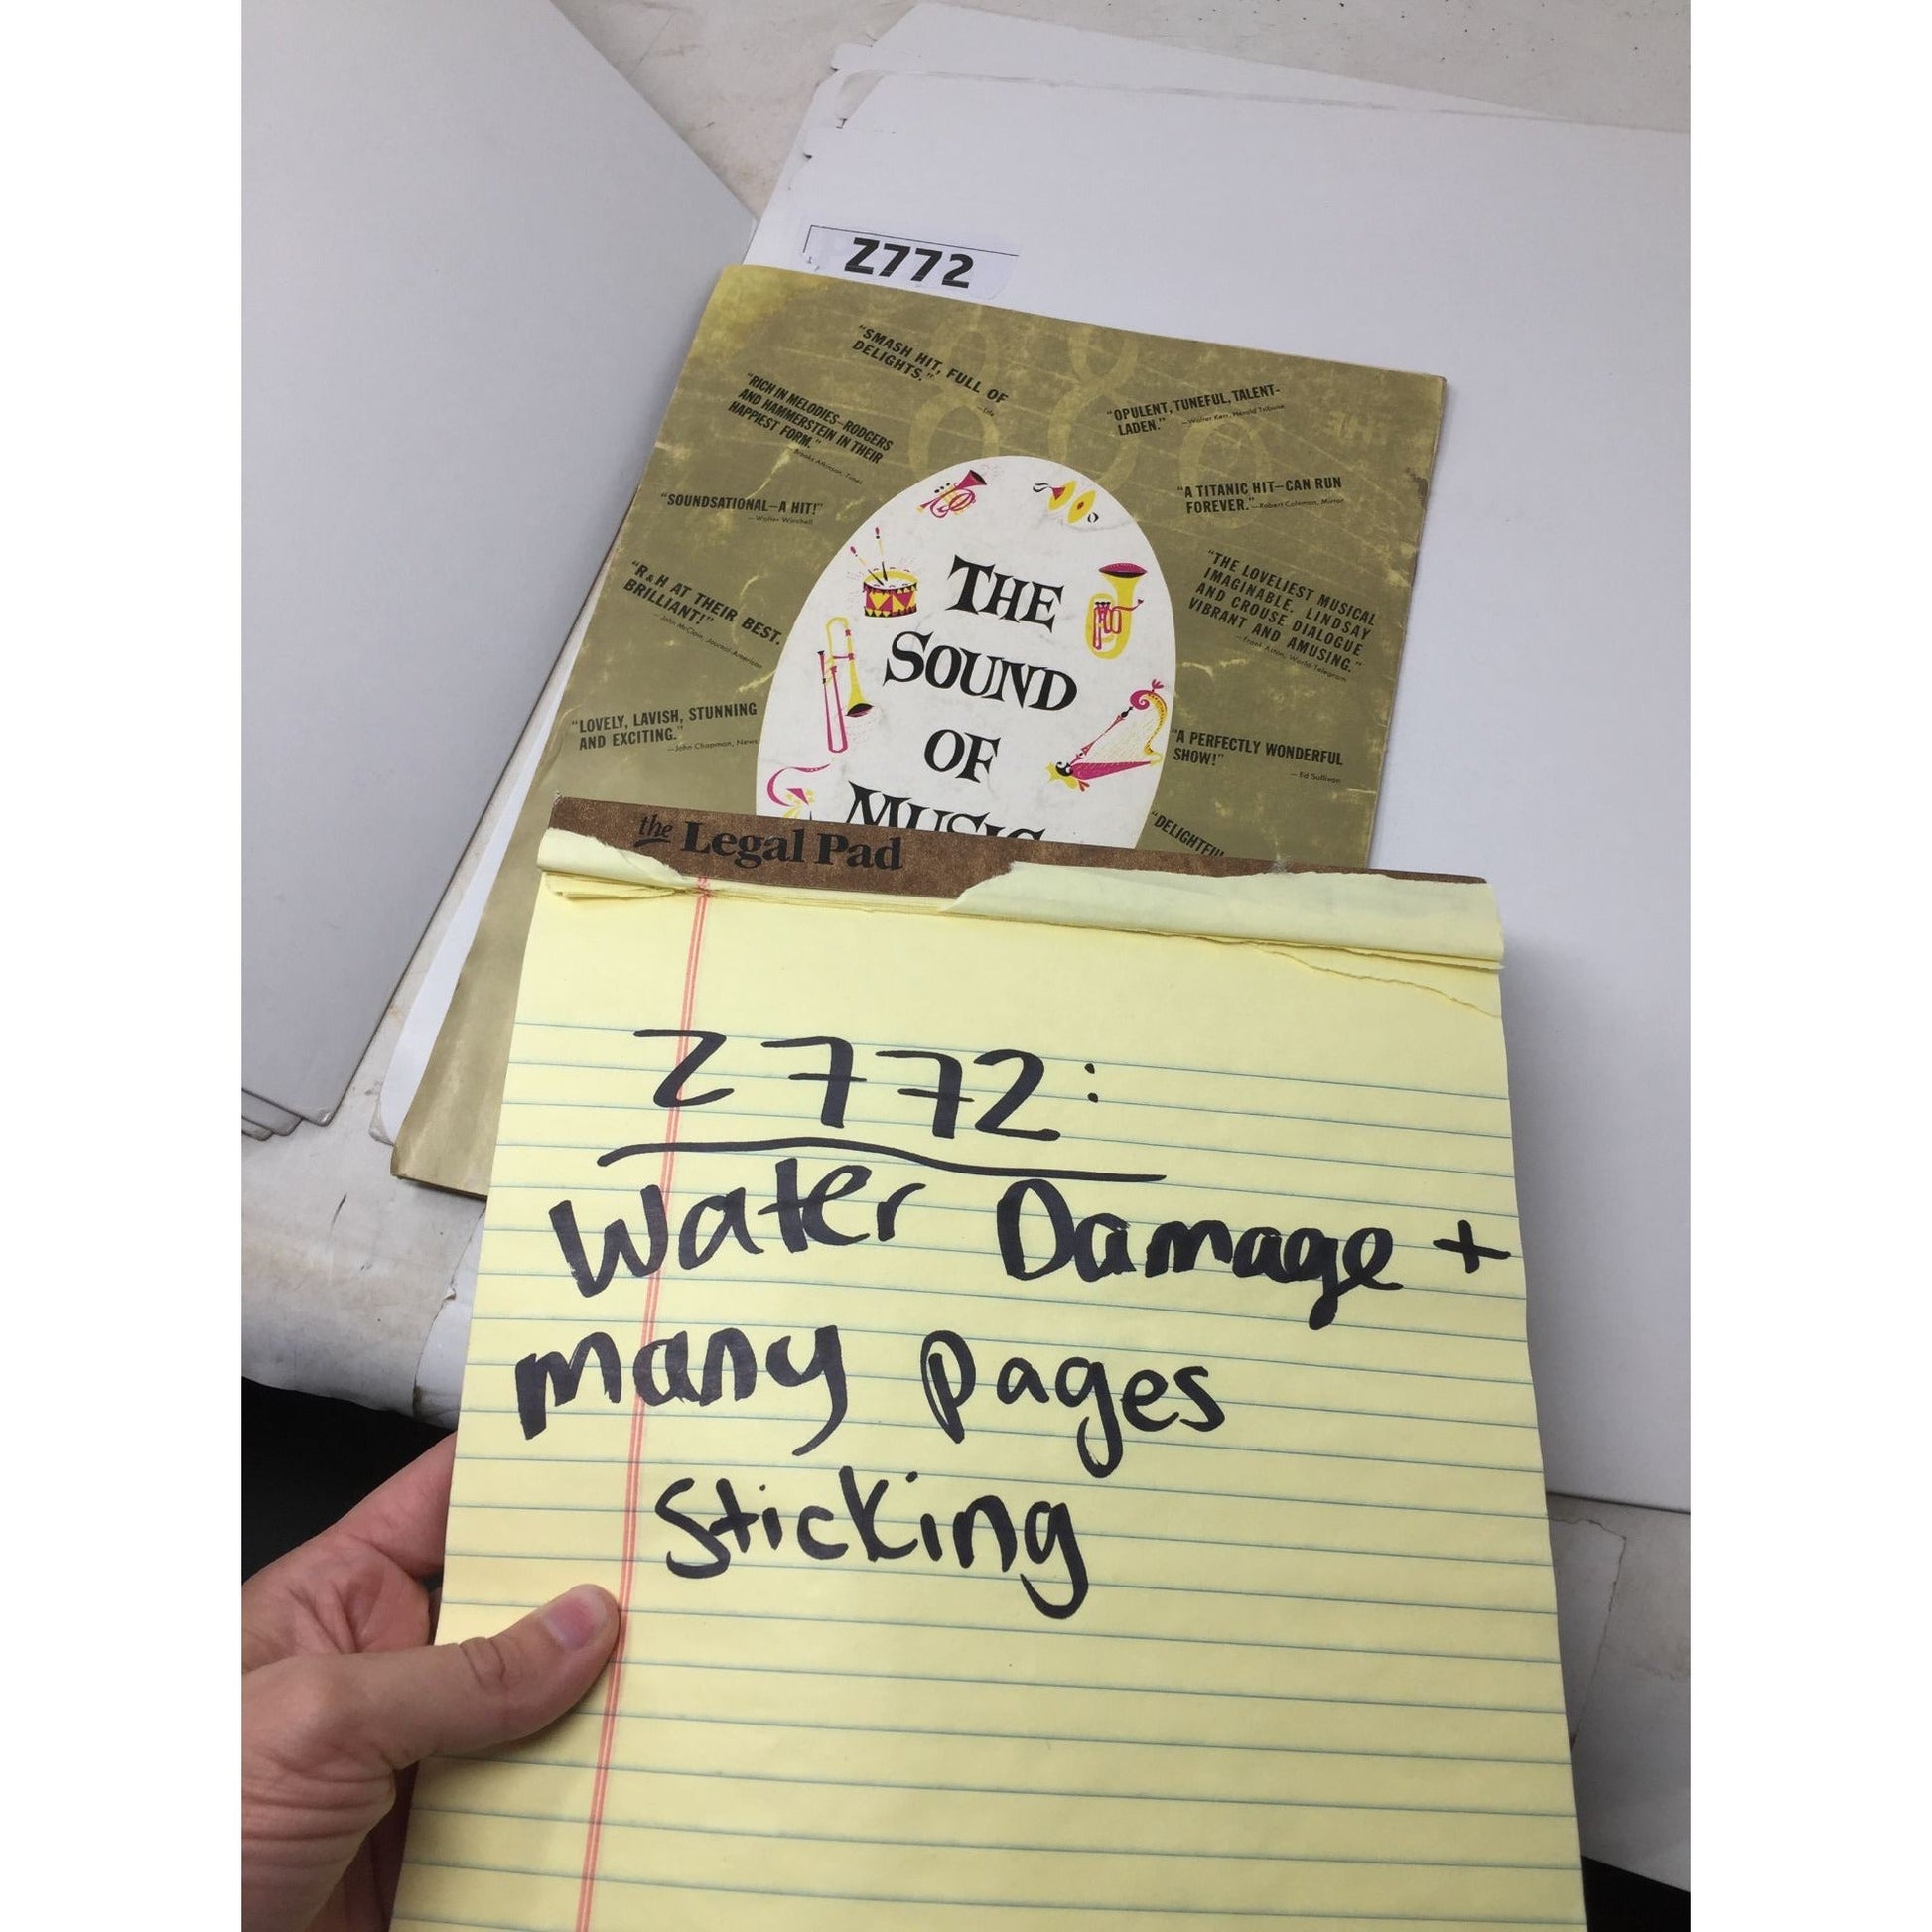 Z772
"SMASH HIT, FULL OF
DELIGHTS."
—Life
"RICH IN MELODIES—RODGERS
AND HAMMERSTEIN IN THEIR
HAPPIEST FORM."
Brooks Atkinson, Times
"OPULENT, TUNEFUL, TALENT-
LADEN." —Walter Kerr, Herald Tribune
"SOUNDSATIONAL—A HIT!"
—Walter Winchell
"A TITANIC HIT—CAN RUN
FOREVER."—Robert Coleman, Mirror
"R&H AT THEIR BEST.
BRILLIANT!"
John McClain, Journal-American
"THE LOVELIEST MUSICAL
IMAGINABLE. LINDSAY
AND CROUSE DIALOGUE
VIBRANT AND AMUSING."
—Frank Aston, World-Telegram
"LOVELY, LAVISH, STUNNING
AND EXCITING."
—John Chapman, News
"A PERFECTLY WONDERFUL
SHOW!"
—Ed Sullivan
THE
SOUND
OF
MUSIC
"DELIGHTFUL
the Legal Pad
Z772:
Water Damage +
many pages
sticking